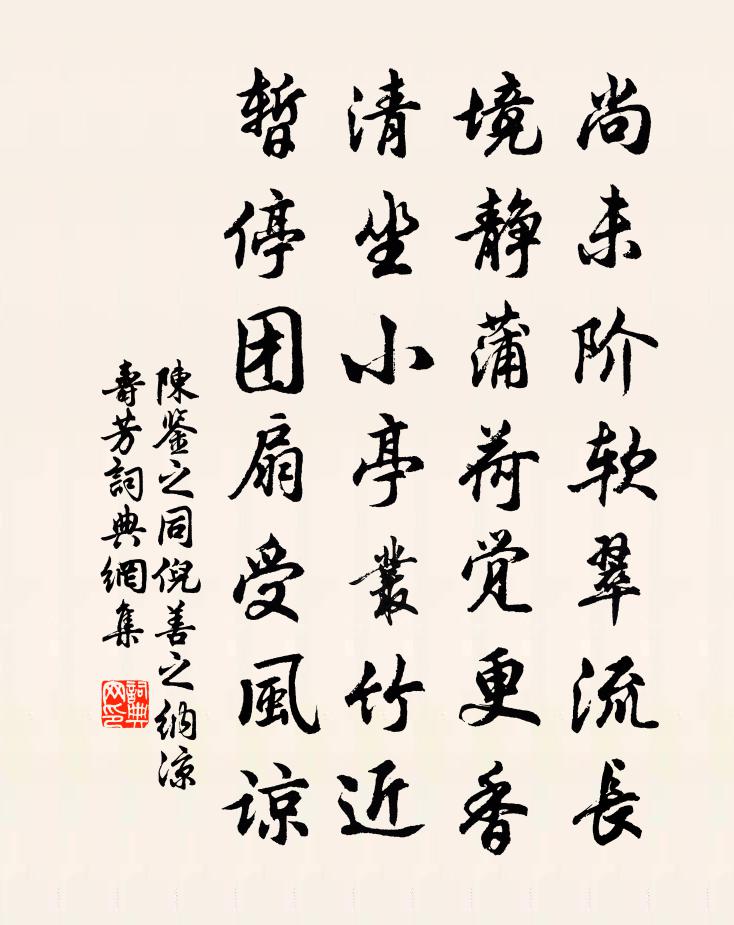 尚未阶软翠流长
境静蒲荷觉更香
清坐小亭叢竹近
暂停团扇受風谅
陳鉴之同倪善之纳凉
壽芳詞典網集
詞典網印